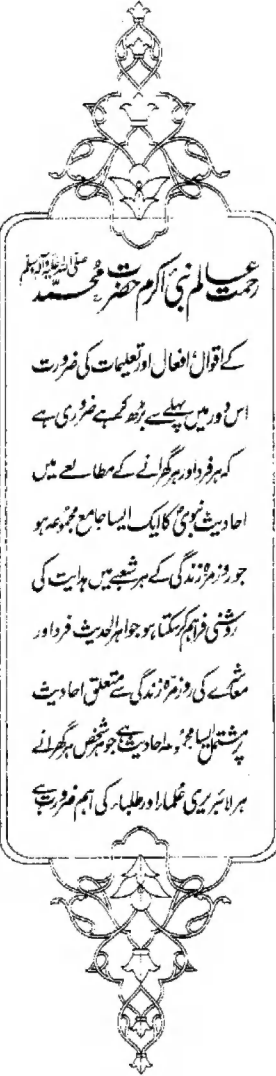 رحمت عالم نبی اکرم حضرت محمد صلی اللہ علیہ وآلہ وسلم
کے اقوال، افعال اور تعلیمات کی ضرورت
اس دور میں پہلے سے بڑھ کر ہے ضروری ہے
کہ ہر فرد اور ہر گھرانے کے مطالعے میں
احادیث نبویؐ کا ایک ایسا جامع مجموعہ ہو
جو روزمرہ زندگی کے ہر شعبے میں ہدایت کی
روشنی فراہم کر سکتا ہو جواہر الحدیث فرد اور
معاشرے کی روزمرہ زندگی سے متعلق احادیث
پر مشتمل ایسا مجموعہ احادیث ہے جو ہر شخص ہر گھرانے
ہر لائبریری علماء اور طلباء کی اہم ضرورت ہے